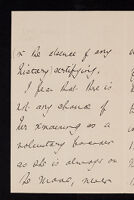 in the absence of any
history certifying.
I fear that there is
not any chance of
her knowing as a
voluntary boarder
as she is always on
the move, never